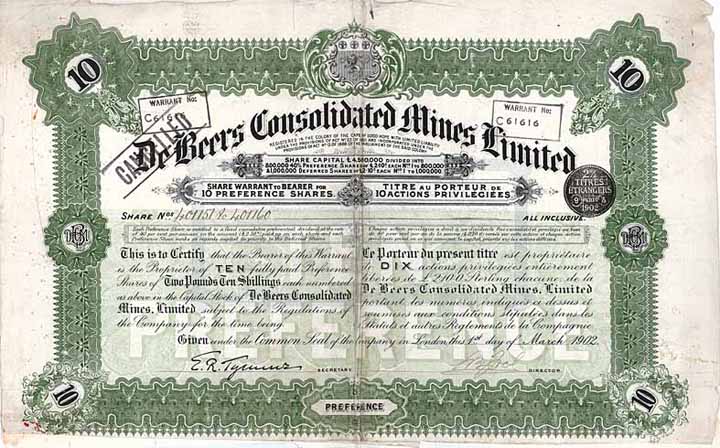 10
10
WARRANT No:
C 61616
WARRANT No:
CANCELLED
De Beers Consolidated Mines Limited
REGISTERED IN THE COLONY OF THE CAPE OF GOOD HOPE WITH LIMITED LIABILITY
SHARE CAPITAL £4,500,000 DIVIDED INTO
800,000 40% PREFERENCE SHARES OF £2.10s EACH Nos 1 TO 800,000
& 1,000,000 DEFERRED SHARES OF £2.10s EACH Nos 1 TO 1,000,000
SHARE WARRANT TO BEARER FOR
10 PREFERENCE SHARES.
TITRE AU PORTEUR DE
10 ACTIONS PRIVILÉGIÉES
2%
TITRES
ETRANGERS
1902
SHARE Nos 401151 to 401160
ALL INCLUSIVE.
This is to Certify that the Bearer of this Warrant
is the Proprietor of TEN fully paid Preference
Shares of Two Pounds Ten Shillings each numbered
as above in the Capital Stock of De Beers Consolidated
Mines, Limited subject to the Regulations of
the Company for the time being.
Le Porteur du present titre est propriétaire
de DIX actions privilégiées entièrement
libérées de £2.10.0 Sterling chacune de la
De Beers Consolidated Mines, Limited
portant les numéros indiqués ci dessus et
soumises aux conditions stipulées dans les
Statuts et autres Règlements de la Compagnie
PREFERENCE
Given under the Common Seal of the Company in London this 1st day of March 1902.
SECRETARY
DIRECTOR
10
10
PREFERENCE